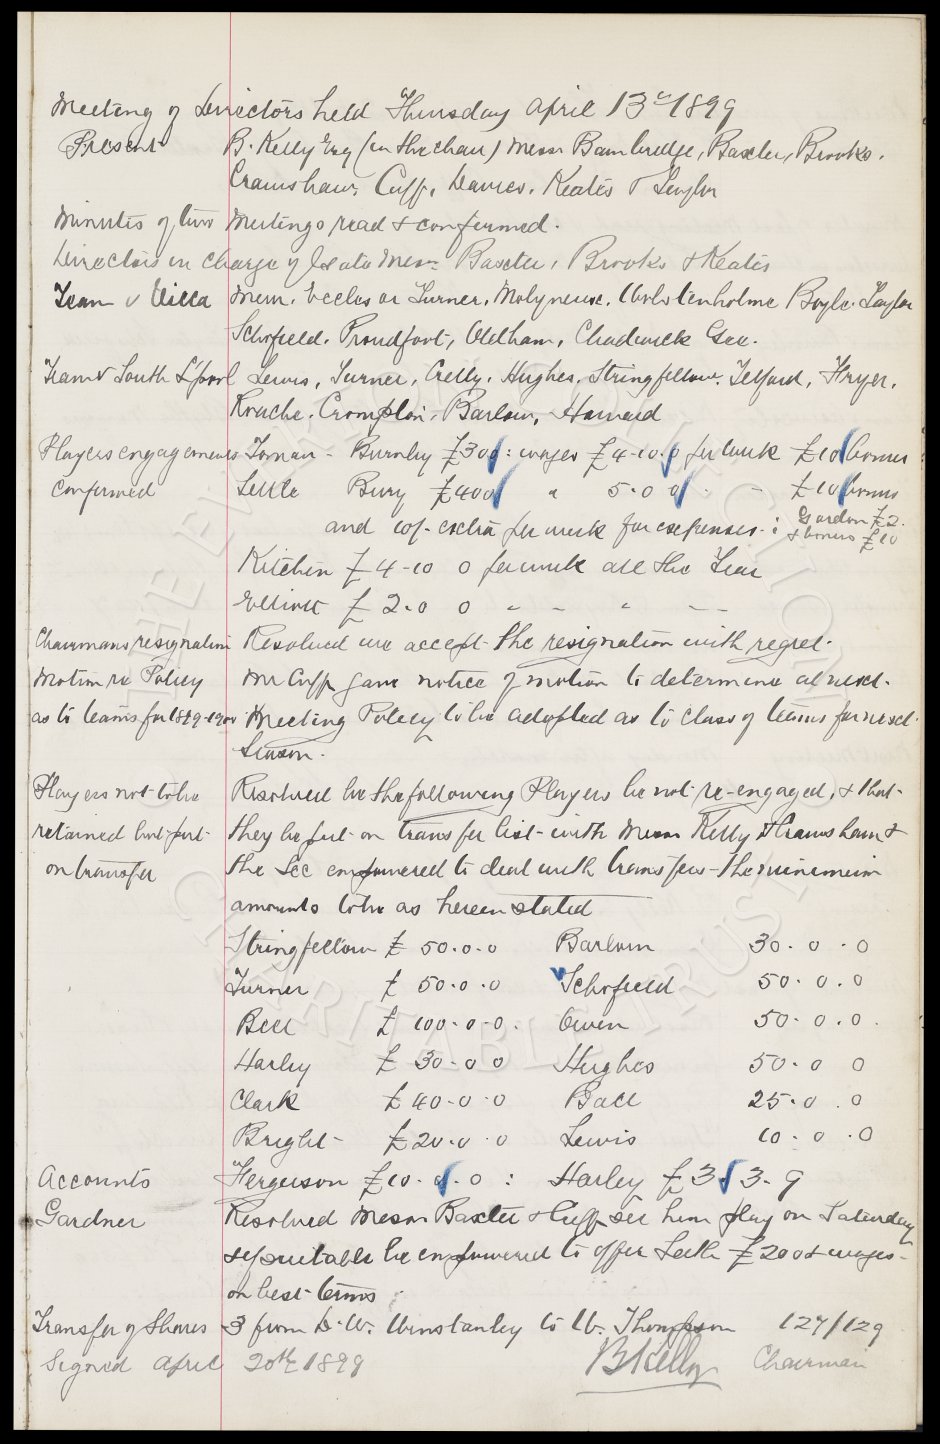 Meeting of Directors held Thursday April 13th 1899
Present B. Kelly Esq (in the chair) Messrs Bainbridge, Baxter, Brooks.
Crawshaw, Cuff, Davies, Keates & Taylor
Minutes of two meetings read & confirmed.
Directors in charge of Gate Messrs Baxter, Brooks & Keates
Team v Villa Muir. Eccles or Turner. Molyneux. Wolstenholme Boyle. Taylor
Schofield. Proudfoot, Oldham, Chadwick Gee.
Team v South L'pool Lewis, Turner, Crelly, Hughes, Stringfellow. Telford, Fryer.
Roache. Crompton. Barlow, Howard
Players engagements Toman - Burnley £300 : wages £4-10-0 per week £10 bonus
confirmed Settle Bury £400 " 5.0 0 . - £10 bonus
and 10/- extra per week for expenses : Gordon £2.
& bonus £10
Kitchen £4-10 0 per week all the Year
Elliott £2.0 0 " - " - -
Chairmans resignation Resolved we accept the resignation with regret.
Motion re Policy Mr Cuff gave notice of motion to determine at next
as to teams for 1899-1900 Meeting Policy to be adopted as to class of teams for next
Season.
Players not to be Resolved be the following Players be not re-engaged, & that
retained but put they be put on transfer list with Messrs Kelly & Crawshaw &
on transfer the Sec empowered to deal with transfers - the minimum
amounts to be as herein stated
Stringfellow £50.0.0 Barlow 30. 0 . 0
Turner £50.0.0 Schofield 50. 0 . 0
Bell £100-0-0. Owen 50- 0 . 0 .
Harley £30-0 0 Hughes 50. 0 0
Clark £40-0-0 Ball 25.0 . 0
Bright - £20.0.0 Lewis 10. 0 . 0
Accounts Ferguson £10. 0. 0 : Harley £3 3. 9
Gardner Resolved Messrs Baxter & Cuff see him play on Saturday
if suitable be empowered to offer Leith £200 & wages
on best terms
Transfer of Shares 3 from D. W. Winstanley to W. Thompson 127/129
Signed April 20th 1899 B Kelly Chairman